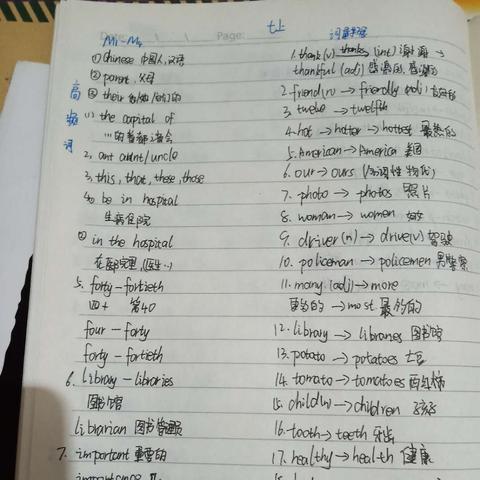 Date:
Page:
七上
M1-M4
① Chinese 中国人,汉语
② parent 父母
③ their
高频词
(1) the capital of
…的首都/省会
2. ant aunt/uncle
3. this, that, these, those
4. ① be in hospital
生病住院
② in the hospital
在医院里
5. forty-fortieth
四十 第40
four-forty
forty-fortieth
6. library-libraries
图书馆
librarian 图书管理员
7. important 重要的
importance
词最强
1. thank(v) thanks (int) 谢谢 →
thankful (adj) 感激的
2. friend(n) → friendly (adj) 友好的
3. twelve → twelfth
4. hot → hotter → hottest 最热的
5. American → America 美国
6. our → ours (名词性物代)
7. photo → photos 照片
8. woman → women 妇女
9. driver (n) → drive(v) 驾驶
10. policeman → policemen 男警察
11. many (adj) → more
更多的 → most 最多的
12. library → libraries 图书馆
13. potato → potatoes 土豆
14. tomato → tomatoes 西红柿
15. child(n) → children 孩子
16. tooth → teeth 牙齿
17. healthy → health 健康